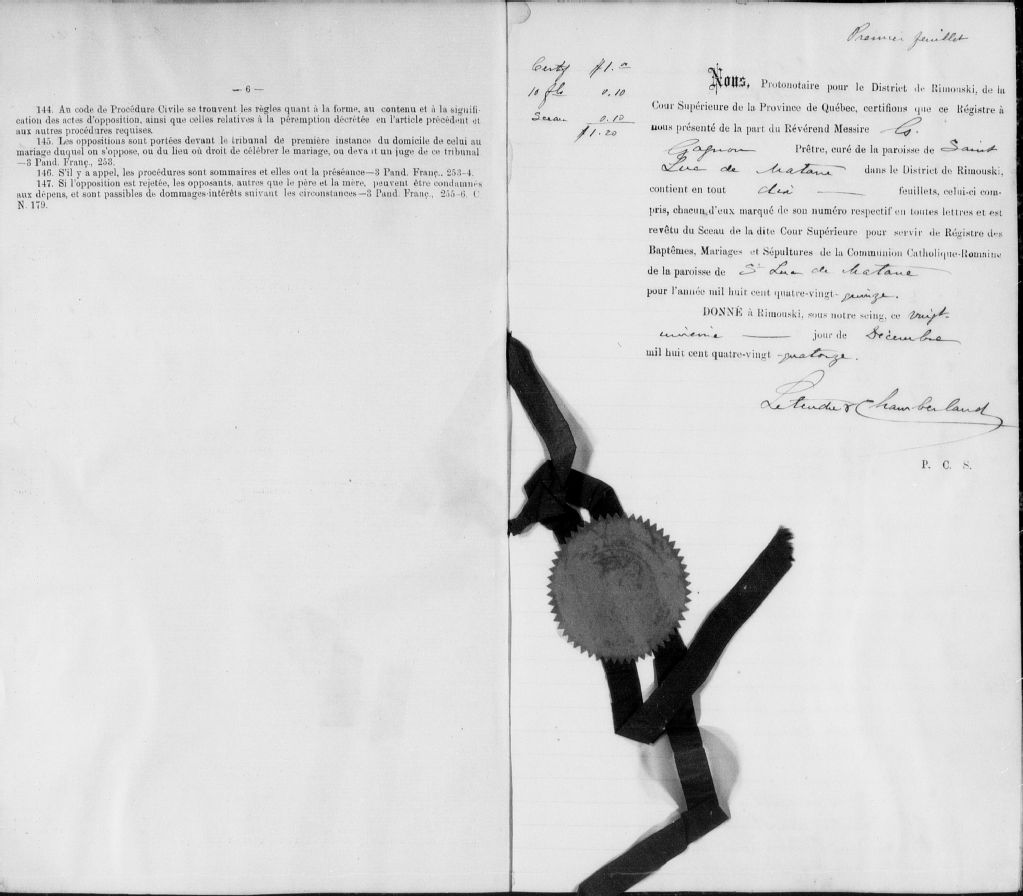 — 6 —
144. Au code de Procédure Civile se trouvent les règles quant à la forme, au contenu et à la signifi-
cation des actes d'opposition, ainsi que celles relatives à la péremption décrétée en l'article précédent et
aux autres procédures requises.
145. Les oppositions sont portées devant le tribunal de première instance du domicile de celui au
mariage duquel on s'oppose, ou du lieu où droit de célébrer le mariage, ou devant un juge de ce tribunal
—3 Pand. Franç., 253.
146. S'il y a appel, les procédures sont sommaires et elles ont la préséance—3 Pand. Franç., 253-4.
147. Si l'opposition est rejetée, les opposants, autres que le père et la mère, peuvent être condamnés
aux dépens, et sont passibles de dommages-intérêts suivant les circonstances—3 Pand. Franç., 255-6. C
N. 179.
Premier feuillet
Certf $1.00
10 flts 0.10
Sceau 0.10
$1.20
Nous, Protonotaire pour le District de Rimouski, de la
Cour Supérieure de la Province de Québec, certifions que ce Régistre à
nous présenté de la part du Révérend Messire
Gagnon Prêtre, curé de la paroisse de Saint
Luc de Matane dans le District de Rimouski,
contient en tout dix — feuillets, celui-ci com-
pris, chacun d'eux marqué de son numéro respectif en toutes lettres et est
revêtu du Sceau de la dite Cour Supérieure pour servir de Régistre des
Baptêmes, Mariages et Sépultures de la Communion Catholique-Romaine
de la paroisse de St Luc de Matane
pour l'année mil huit cent quatre-vingt-quinze.
DONNÉ à Rimouski, sous notre seing, ce vingt-
unième — jour de Décembre
mil huit cent quatre-vingt-quatorze.
Letendre & Chamberland
P. C. S.